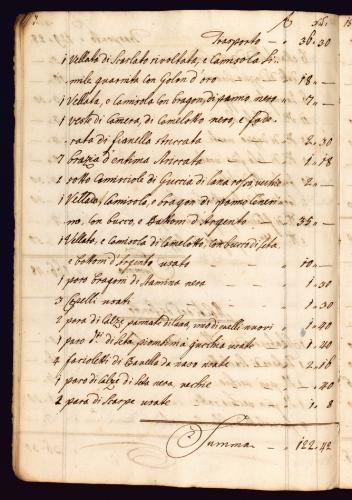 Trasporto - " 36. 30
1 Vellata di Scarlato rivoltata, e Camisola Si-
mile guarnita con Golon d'oro " 18 " -
1 Vellata, e Camisola con bragon di panno nero " 7 " -
1 veste di Camera, di Camelotto nero, e fode-
rata di fianella " 2. 30
7 brazia d'entima " 1. 18
1 sotto Camisciola di lana vechio " 2. -
1 Vellata, Camisola, e bragon di panno Ceneri-
no, con bucco, e Bottoni d'Argento " 35 " -
1 Vellata, e Camisola di Camelotto, con bucco di Seta
e bottoni d'Argento usato " 10 " -
1 pero bragon di Stamina nera " 1. 30
3 Capelli usati " 1. 30
2 para di Calze di lana, nuovi " 1. 40
1 paro di Seta, vechie usate " 1. 40
4 facioletti di Banella da naso usate " 2. 16
1 paro di Calze di Seta nera, vechie " -. 40
2 para di Scarpe usate " 1. 8
Summa - " 122. 42